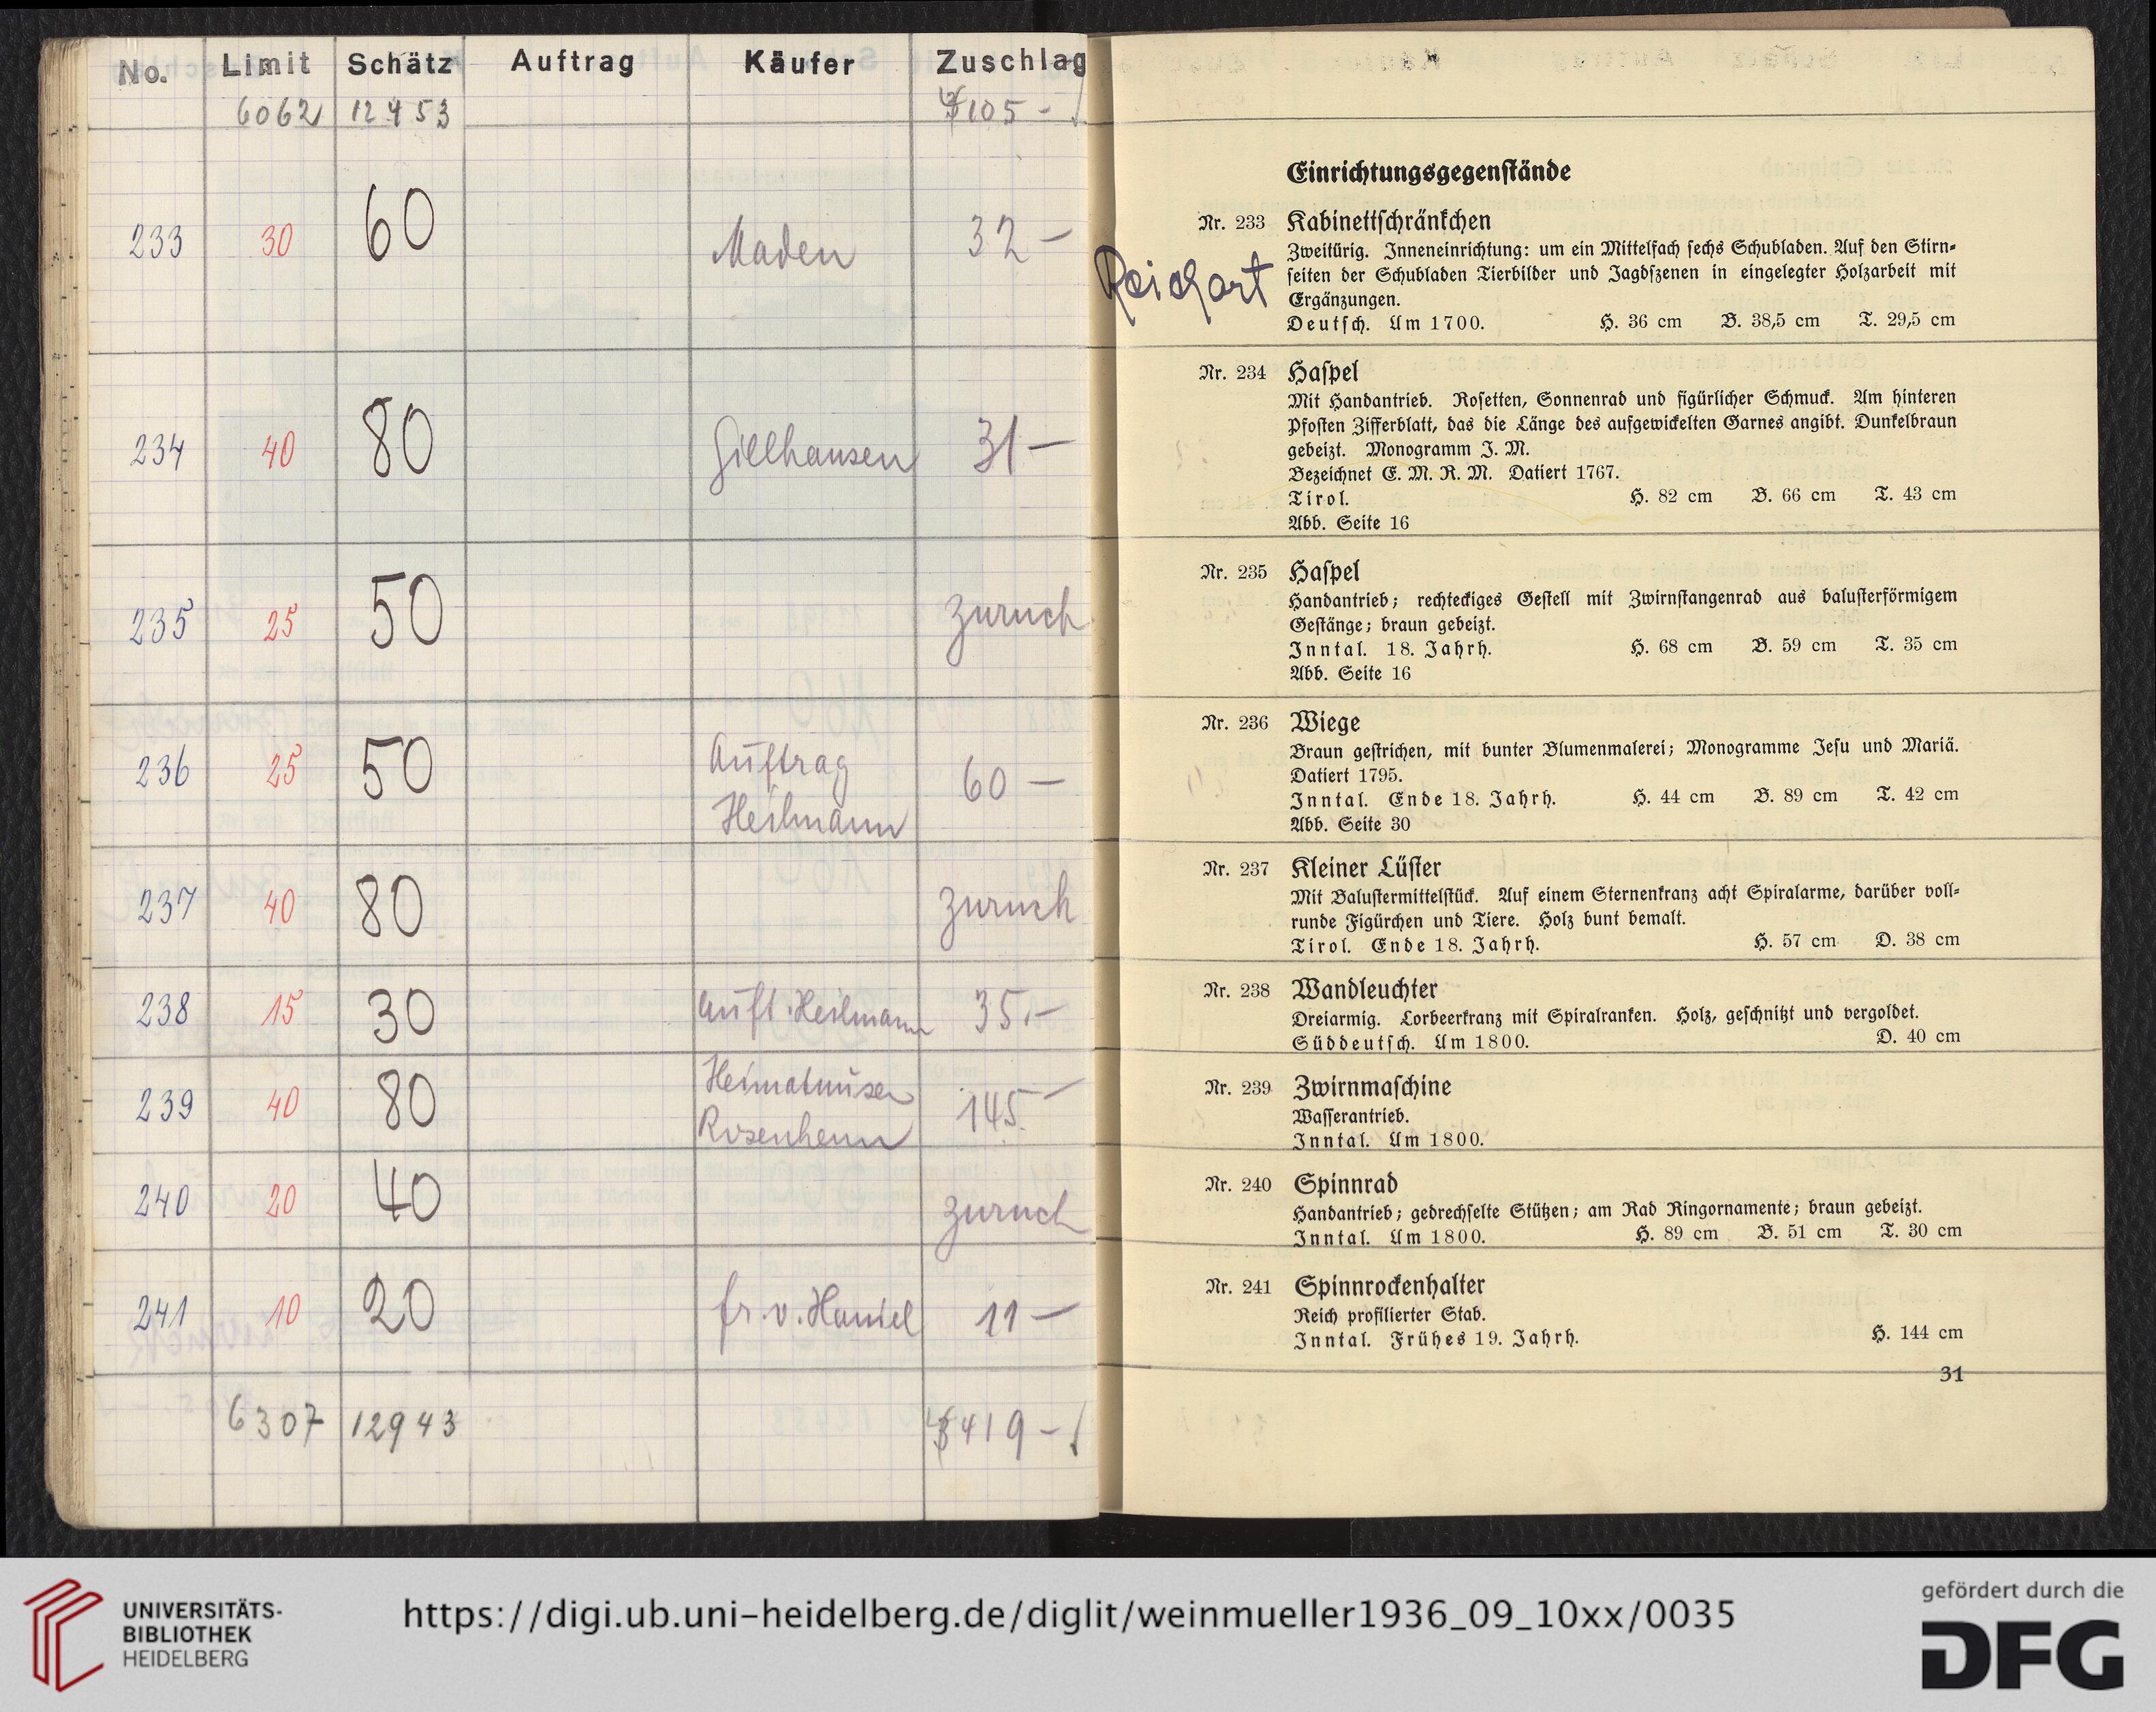 No. Limit Schätz Auftrag Käufer Zuschlag
6062 12453 105 -
233 30 60 Maden 32 -
234 40 80 Gillhausen 31 -
235 25 50 zurück
236 25 50 Auftrag Heilmann 60 -
237 40 80 zurück
238 15 30 Auft. Heilmann 35.-
239 40 80 Heimatmuseum Rosenheim 145.-
240 20 40 zurück
241 10 20 fr. v. Haniel 11 -
6307 12943 419 -
Einrichtungsgegenstände
Nr. 233 Kabinettschränkchen
Zweitürig. Inneneinrichtung: um ein Mittelfach sechs Schubladen. Auf den Stirn-
Reichart
seiten der Schubladen Tierbilder und Jagdszenen in eingelegter Holzarbeit mit
Ergänzungen.
Deutsch. Um 1700. H. 36 cm B. 38,5 cm T. 29,5 cm
Nr. 234 Haspel
Mit Handantrieb. Rosetten, Sonnenrad und figürlicher Schmuck. Am hinteren
Pfosten Zifferblatt, das die Länge des aufgewickelten Garnes angibt. Dunkelbraun
gebeizt. Monogramm J. M.
Bezeichnet E. M. R. M. Datiert 1767.
Tirol. H. 82 cm B. 66 cm T. 43 cm
Abb. Seite 16
Nr. 235 Haspel
Handantrieb; rechteckiges Gestell mit Zwirnstangenrad aus balusterförmigem
Gestänge; braun gebeizt.
Inntal. 18. Jahrh. H. 68 cm B. 59 cm T. 35 cm
Abb. Seite 16
Nr. 236 Wiege
Braun gestrichen, mit bunter Blumenmalerei; Monogramme Jesu und Mariä.
Datiert 1795.
Inntal. Ende 18. Jahrh. H. 44 cm B. 89 cm T. 42 cm
Abb. Seite 30
Nr. 237 Kleiner Lüster
Mit Balustermittelstück. Auf einem Sternenkranz acht Spiralarme, darüber voll-
runde Figürchen und Tiere. Holz bunt bemalt.
Tirol. Ende 18. Jahrh. H. 57 cm D. 38 cm
Nr. 238 Wandleuchter
Dreiarmig. Lorbeerkranz mit Spiralranken. Holz, geschnitzt und vergoldet.
Süddeutsch. Um 1800. D. 40 cm
Nr. 239 Zwirnmaschine
Wasserantrieb.
Inntal. Um 1800.
Nr. 240 Spinnrad
Handantrieb; gedrechselte Stützen; am Rad Ringornamente; braun gebeizt.
Inntal. Um 1800. H. 89 cm B. 51 cm T. 30 cm
Nr. 241 Spinnrockenhalter
Reich profilierter Stab.
Inntal. Frühes 19. Jahrh. H. 144 cm
31
UNIVERSITÄTS-
BIBLIOTHEK
HEIDELBERG
https://digi.ub.uni-heidelberg.de/diglit/weinmueller1936_09_10xx/0035
gefördert durch die
DFG